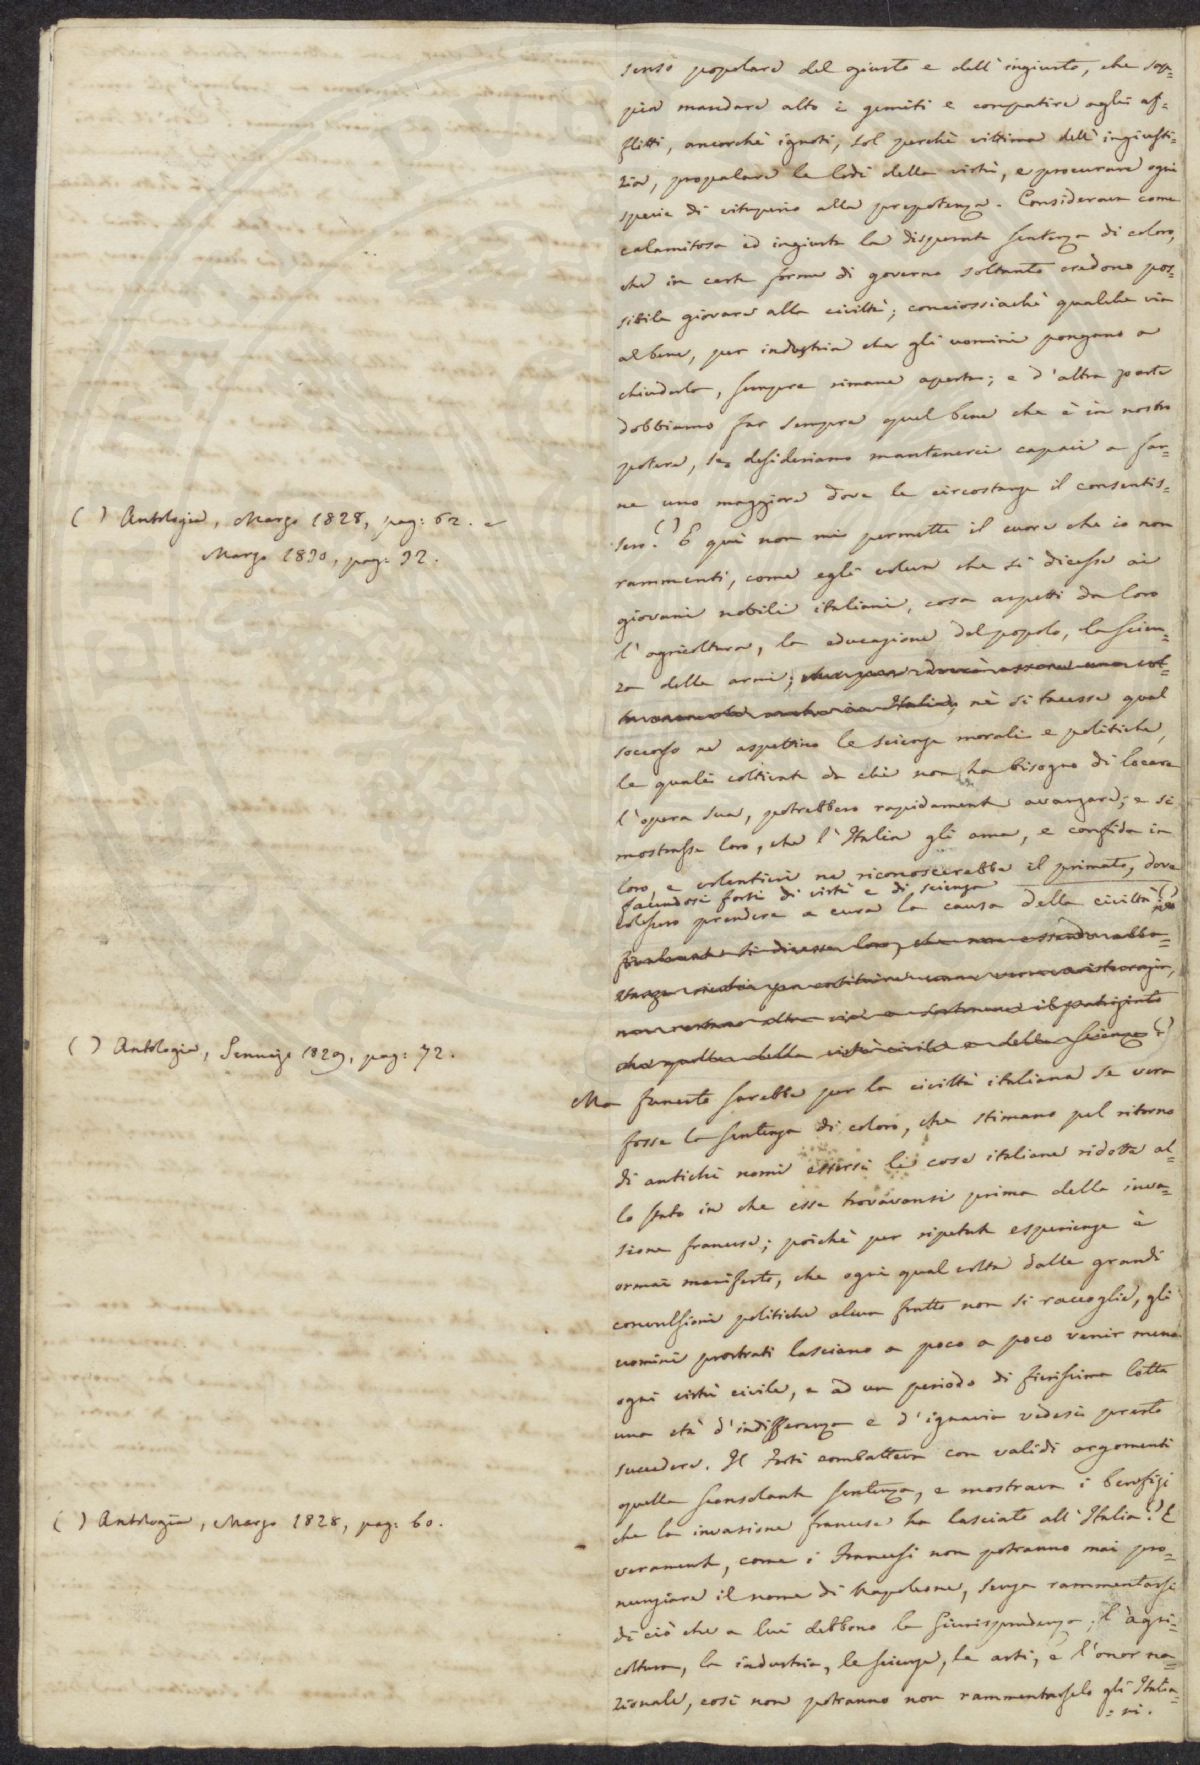 senso popolare del giusto e dell'ingiusto, che sap=
pia mandare alto i gemiti e compatire agli af=
flitti, ancorchè ignoti, sol perchè vittima dell'ingiusti=
zia, propalare le lodi della virtù, e procurare ogni
specie di vituperio alla prepotenza. Considerava come
calamitosa ed ingiusta la disperata sentenza di coloro,
che in certe forme di governo soltanto credono pos=
sibile giovare alla civiltà; conciossiachè qualche via
al bene, per industria che gli uomini pongano a
chiuderla, sempre rimane aperta; e d'altra parte
dobbiamo far sempre quel bene che è in nostro
potere, se desideriamo mantenerci capaci a far=
ne uno maggiore dove le circostanze il consentis=
sero.( ) E quì non mi permette il cuore che io non
( ) Antologia, Marzo 1828, pag: 62. e
Marzo 1830, pag: 92.
rammenti, come egli voleva che si dicesse ai
giovani nobili italiani, cosa aspetti da loro
l'agricoltura, la educazione del popolo, la scien=
za delle armi; che pur dovrà essere una vol=
ta onorata anche in Italia; nè si tacesse qual
soccorso ne aspettino le scienze morali e politiche,
le quali coltivate da chi non ha bisogno di locare
l'opera sua, potrebbero rapidamente avanzare; e si
mostrasse loro, che l'Italia gli ama, e confida in
loro, e volentieri ne riconoscerebbe il primato, dove
facendosi forti di virtù e di scienza
volessero prendere a cura la causa della civiltà.( )
finalmente si dicesse loro, che non essendo abba=
stanza ricchi per costituire una vera aristocrazia,
non restava altra via a sostenere il patriziato
che quella della virtù civile e della scienza( )
( ) Antologia, Gennajo 1829, pag: 72.
Ma funesto sarebbe per la civiltà italiana se vera
fosse la sentenza di coloro, che stimano pel ritorno
di antichi nomi essersi le cose italiane ridotte al=
lo stato in che esse trovavansi prima della inva=
sione francese; poichè per ripetute esperienze è
ormai manifesto, che ogni qual volta dalle grandi
convulsioni politiche alcun frutto non si raccoglie, gli
uomini prostrati lasciano a poco a poco venir meno
ogni virtù civile, e ad un periodo di fierissima lotta
una età d'indifferenza e d'ignavia vedesi presto
succedere. Il Forti combatteva con validi argomenti
quella sconsolante sentenza, e mostrava i benefizi
che la invasione francese ha lasciato all'Italia.( ) E
( ) Antologia, Marzo 1828, pag: 60.
veramente, come i Francesi non potranno mai pro=
nunziare il nome di Napoleone, senza rammentarsi
di ciò che a lui debbono la Giurisprudenza, l'agri=
coltura, la industria, le scienze, le arti, e l'onor na=
zionale, così non potranno non rammentarselo gli Italia=
=ni.